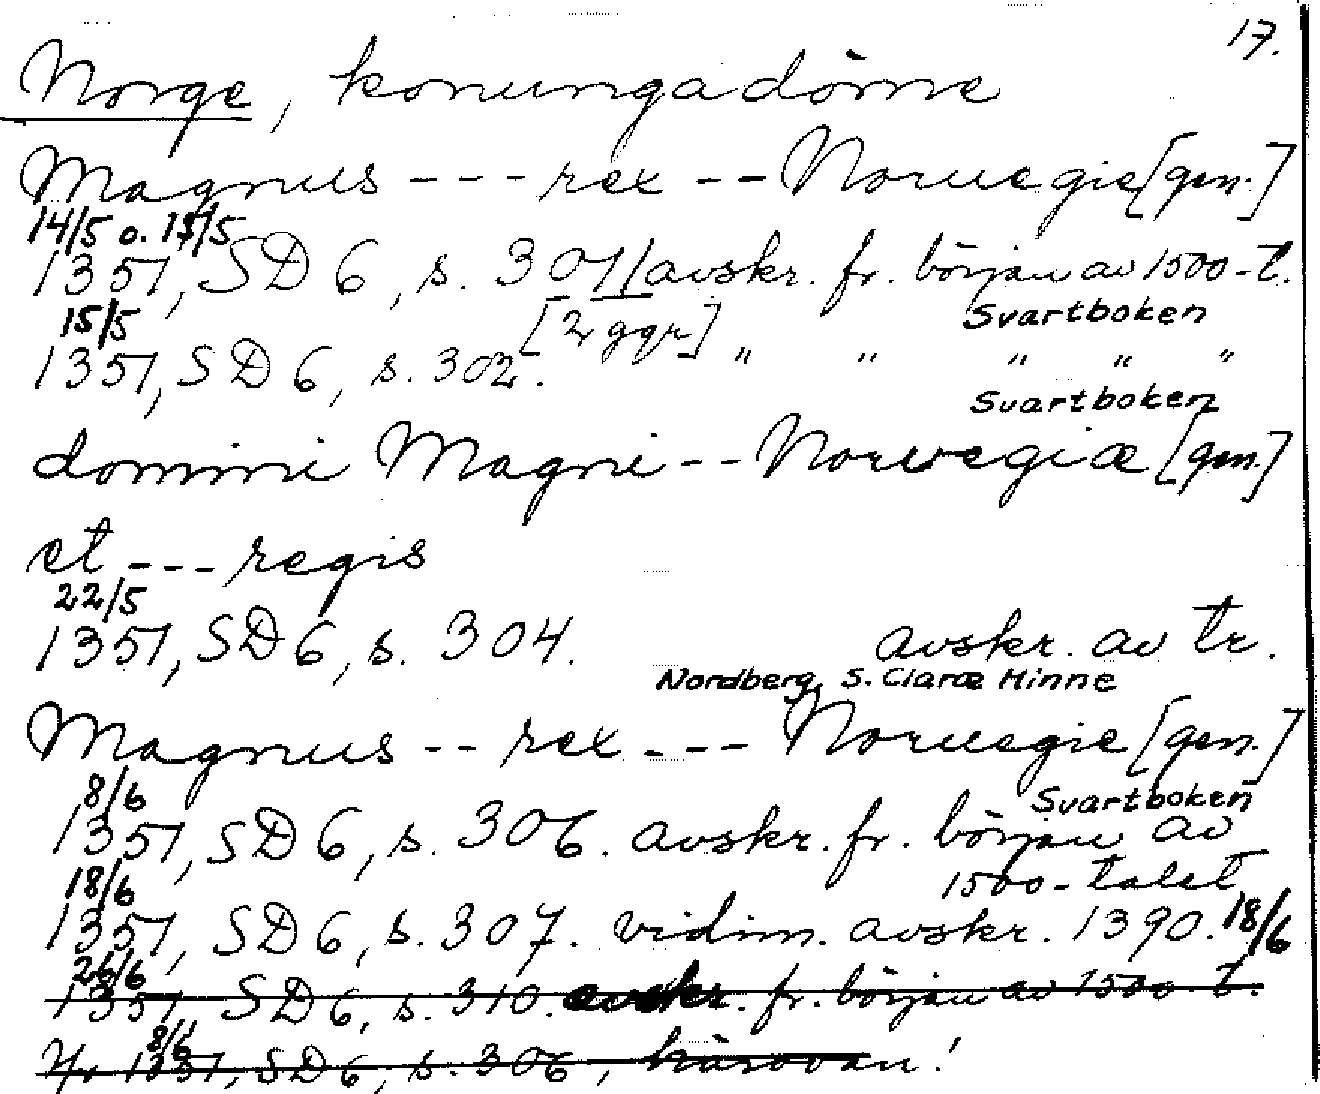 17.
Norge, konungadöme
Magnus --- rex -- Noruegie [gen.]
14/5 o. 15/5
1351, SD 6, s. 301 // avskr. fr. början av 1500-t.
15/5 [2 ggr] Svartboken
1351, SD 6, s. 302. " " " " "
Svartboken
domini Magni -- Norwegiæ [gen.]
et --- regis
22/5
1351, SD 6, s. 304. avskr. av tr.
Nordberg, S. Claræ Minne
Magnus -- rex --- Noruegie [gen.]
8/6 Svartboken
1351, SD 6, s. 306. avskr. fr. början av
18/6 1500-talet
1351, SD 6, s. 307. vidim. avskr. 1390. 18/6
26/6
1351, SD 6, s. 310. avskr. fr. början av 1500-t.
8/6
1351, SD 6, s. 306, härovan!